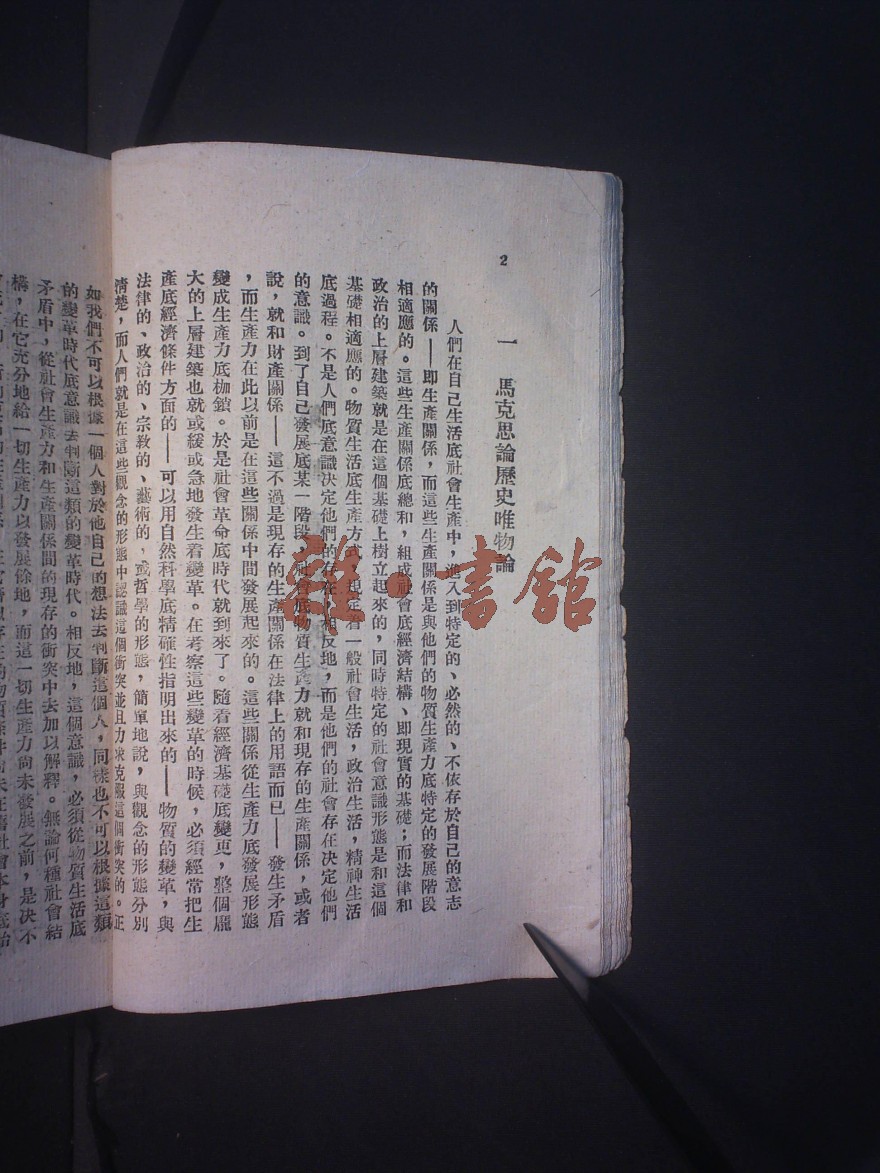 2
一　馬克思論歷史唯物論
人們在自己生活底社會生產中，進入到特定的、必然的、不依存於自己的意志
的關係——即生產關係，而這些生產關係是與他們的物質生產力底特定的發展階段
相適應的。這些生產關係底總和，組成社會底經濟結構、即現實的基礎；而法律和
政治的上層建築就是在這個基礎上樹立起來的，同時特定的社會意識形態是和這個
基礎相適應的。物質生活底生產方式，規定着一般社會生活，政治生活，精神生活
底過程。不是人們底意識決定他們的存在，相反地，而是他們的社會存在決定他們
的意識。到了自己發展底某一階段，社會底物質生產力就和現存的生產關係，或者
說，就和財產關係——這不過是現存的生產關係在法律上的用語而已——發生矛盾
，而生產力在此以前是在這些關係中間發展起來的。這些關係從生產力底發展形態
變成生產力底枷鎖。於是社會革命底時代就到來了。隨着經濟基礎底變更，整個龐
大的上層建築也就或緩或急地發生着變革。在考察這些變革的時候，必須經常把生
產底經濟條件方面的——可以用自然科學底精確性指明出來的——物質的變革，與
法律的、政治的、宗教的、藝術的，或哲學的形態，簡單地說，與觀念的形態分別
清楚，而人們就是在這些觀念的形態中認識這個衝突並且力求克服這個衝突的。正
如我們不可以根據一個人對於他自己的想法去判斷這個人，同樣也不可以根據這類
的變革時代底意識去判斷這類的變革時代。相反地，這個意識，必須從物質生活底
矛盾中，從社會生產力和生產關係間的現存的衝突中去加以解釋。無論何種社會結
構，在它充分地給一切生產力以發展餘地，而這一切生產力尚未發展之前，是決不
雜·書館